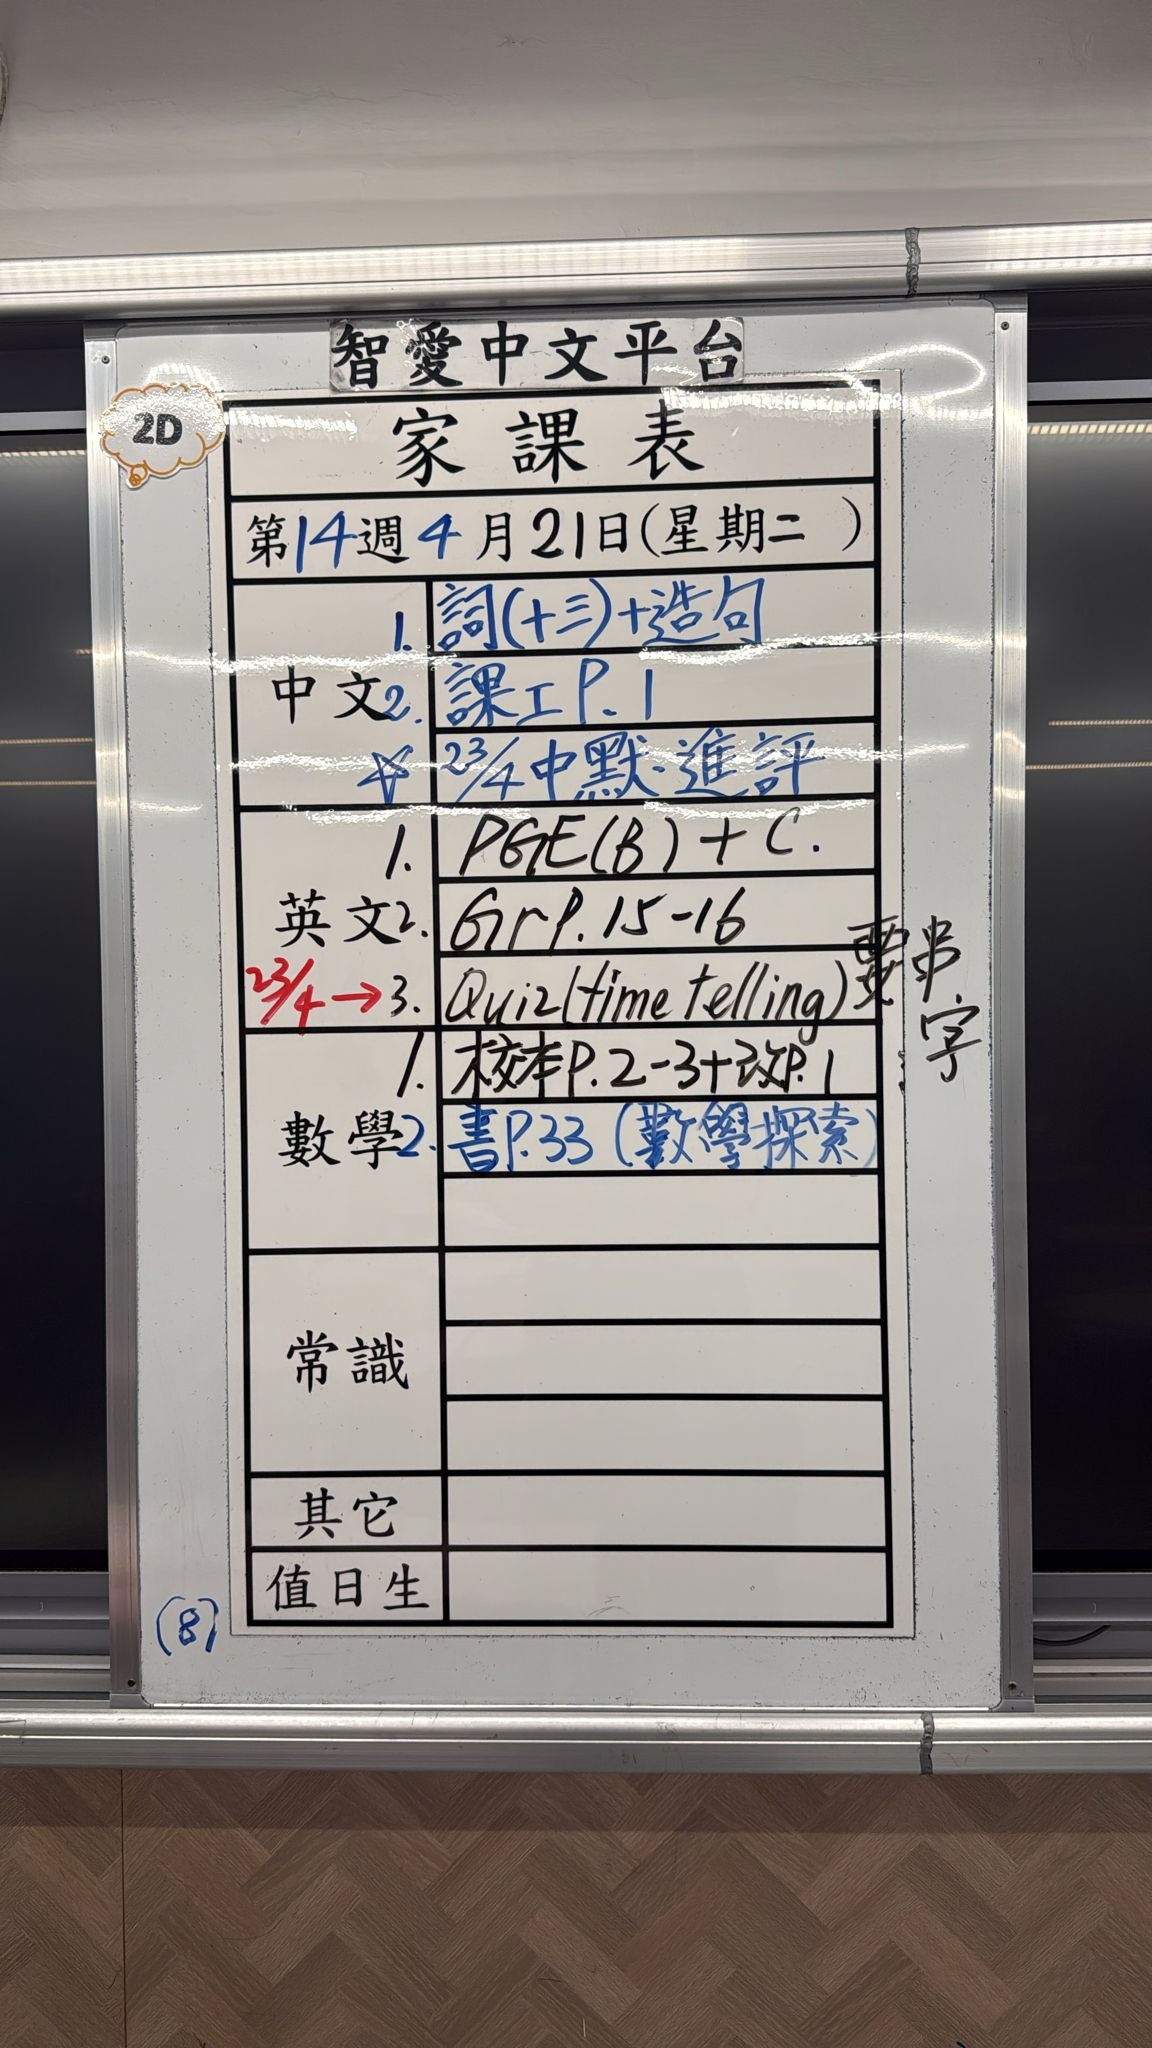 智愛中文平台
2D
家課表
第14週4月21日(星期二 )
中文
1. 詞(十三)+造句
2. 課工P.1
☆ 23/4中默.進評
英文
1. PGE(B)+C.
2. GrP.15-16
23/4→3. Quiz(time telling)要串字
數學
1. 校本P.2-3+改P.1
2. 書P.33(數學探索)
常識
其它
值日生
(8)